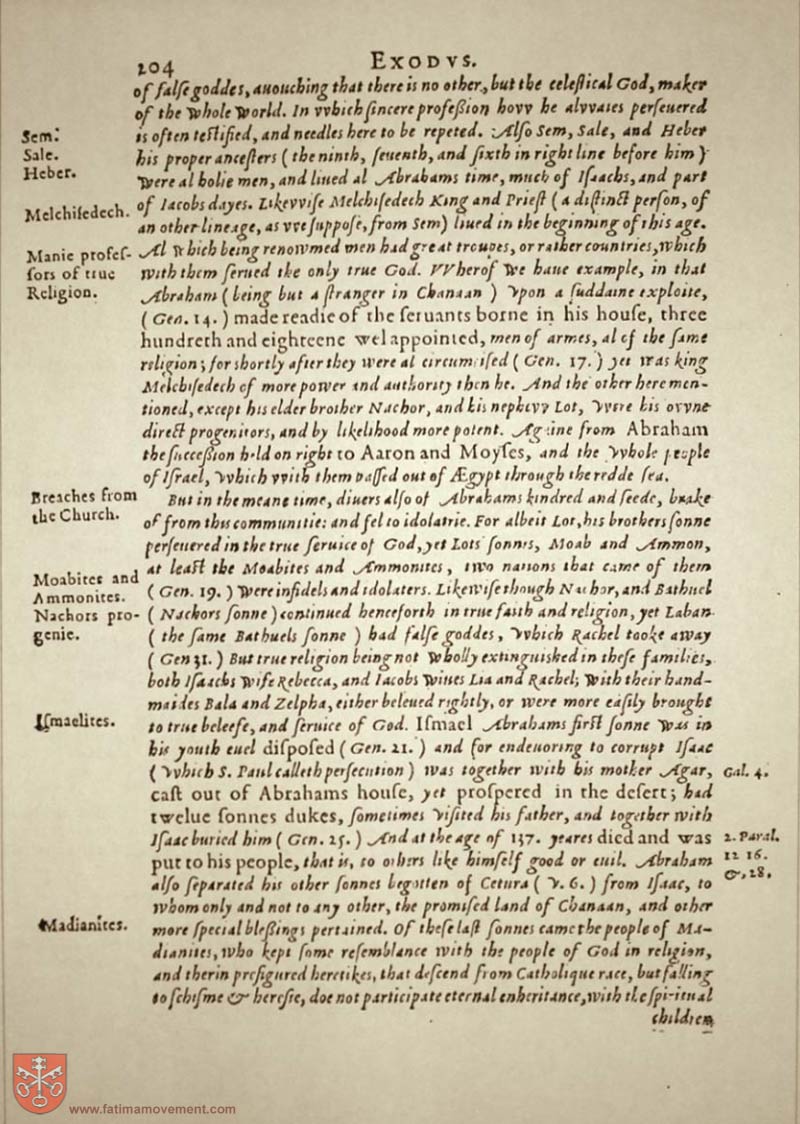 204
EXODVS.
of false goddes, auouching that there is no other, but the celestical God, maker
of the whole world. In vvhich sincere profeßion hovv he alvvaies perseuered
is often testified, and needles here to be repeted. Also Sem, Sale, and Heber
his proper ancesters (the ninth, seuenth, and sixth in right line before him)
were al holie men, and liued al Abrahams time, much of Isaachs, and part
of Iacobs dayes. Likevvise Melchisedech King and Priest (a distinct person, of
an other lineage, as vve suppose, from Sem) liued in the beginning of this age.
Al which being renowmed men had great troupes, or rather countries, which
with them serued the only true God. VVherof we haue example, in that
Abraham (being but a stranger in Chanaan) vpon a suddaine exploite,
(Gen. 14.) made readie of the seruants borne in his house, three
hundreth and eighteene wel appointed, men of armes, al of the same
religion; for shortly after they were al circumcised (Gen. 17.) yet was king
Melchisedech of more power and authority then he. And the other here men-
tioned, except his elder brother Nachor, and his nephevv Lot, vvere his ovvne
direct progenitors, and by likelihood more potent. Againe from Abraham
the succeßion held on right to Aaron and Moyses, and the whole people
of Israel, which vvith them passed out of Ægypt through the redde sea.
But in the meane time, diuers also of Abrahams kindred and seede, brake
of from this communitie: and fel to idolatrie. For albeit Lot, his brothers sonne
perseuered in the true seruice of God, yet Lots sonnes, Moab and Ammon,
at least the Moabites and Ammonites, two nations that came of them
(Gen. 19.) were infidels and idolaters. Likewise though Nachor, and Bathuel
(Nachors sonne) continued henceforth in true faith and religion, yet Laban
(the same Bathuels sonne) had false goddes, which Rachel tooke away
(Gen 31.) But true religion being not wholly extinguished in these families,
both Isaachs wife Rebecca, and Iacobs wiues Lia and Rachel; with their hand-
maides Bala and Zelpha, either beleued rightly, or were more easily brought
to true beleefe, and seruice of God. Ismael Abrahams first sonne was in
his youth euel disposed (Gen. 21.) and for endeuoring to corrupt Isaac
(which S. Paul calleth persecution) was together with his mother Agar,
cast out of Abrahams house, yet prospered in the desert; had
twelue sonnes dukes, sometimes visited his father, and together with
Isaac buried him (Gen. 25.) And at the age of 137. yeares died and was
put to his people, that is, to others like himself good or euil. Abraham
also separated his other sonnes begotten of Cetura (v. 6.) from Isaac, to
whom only and not to any other, the promised land of Chanaan, and other
more special bleßings pertained. Of these last sonnes came the people of Ma-
dianites, who kept some resemblance with the people of God in religion,
and therin prefigured heretikes, that descend from Catholique race, but falling
to schisme & heresie, doe not participate eternal enheritance, with the spiritual
children
Sem.
Sale.
Heber.
Melchisedech.
Manie profes-
sors of true
Religion.
Breaches from
the Church.
Moabites and
Ammonites.
Nachors pro-
genie.
Ismaelites.
Madianites.
Gal. 4.
2. Paral.
12 16.
&, 28,
www.fatimamovement.com